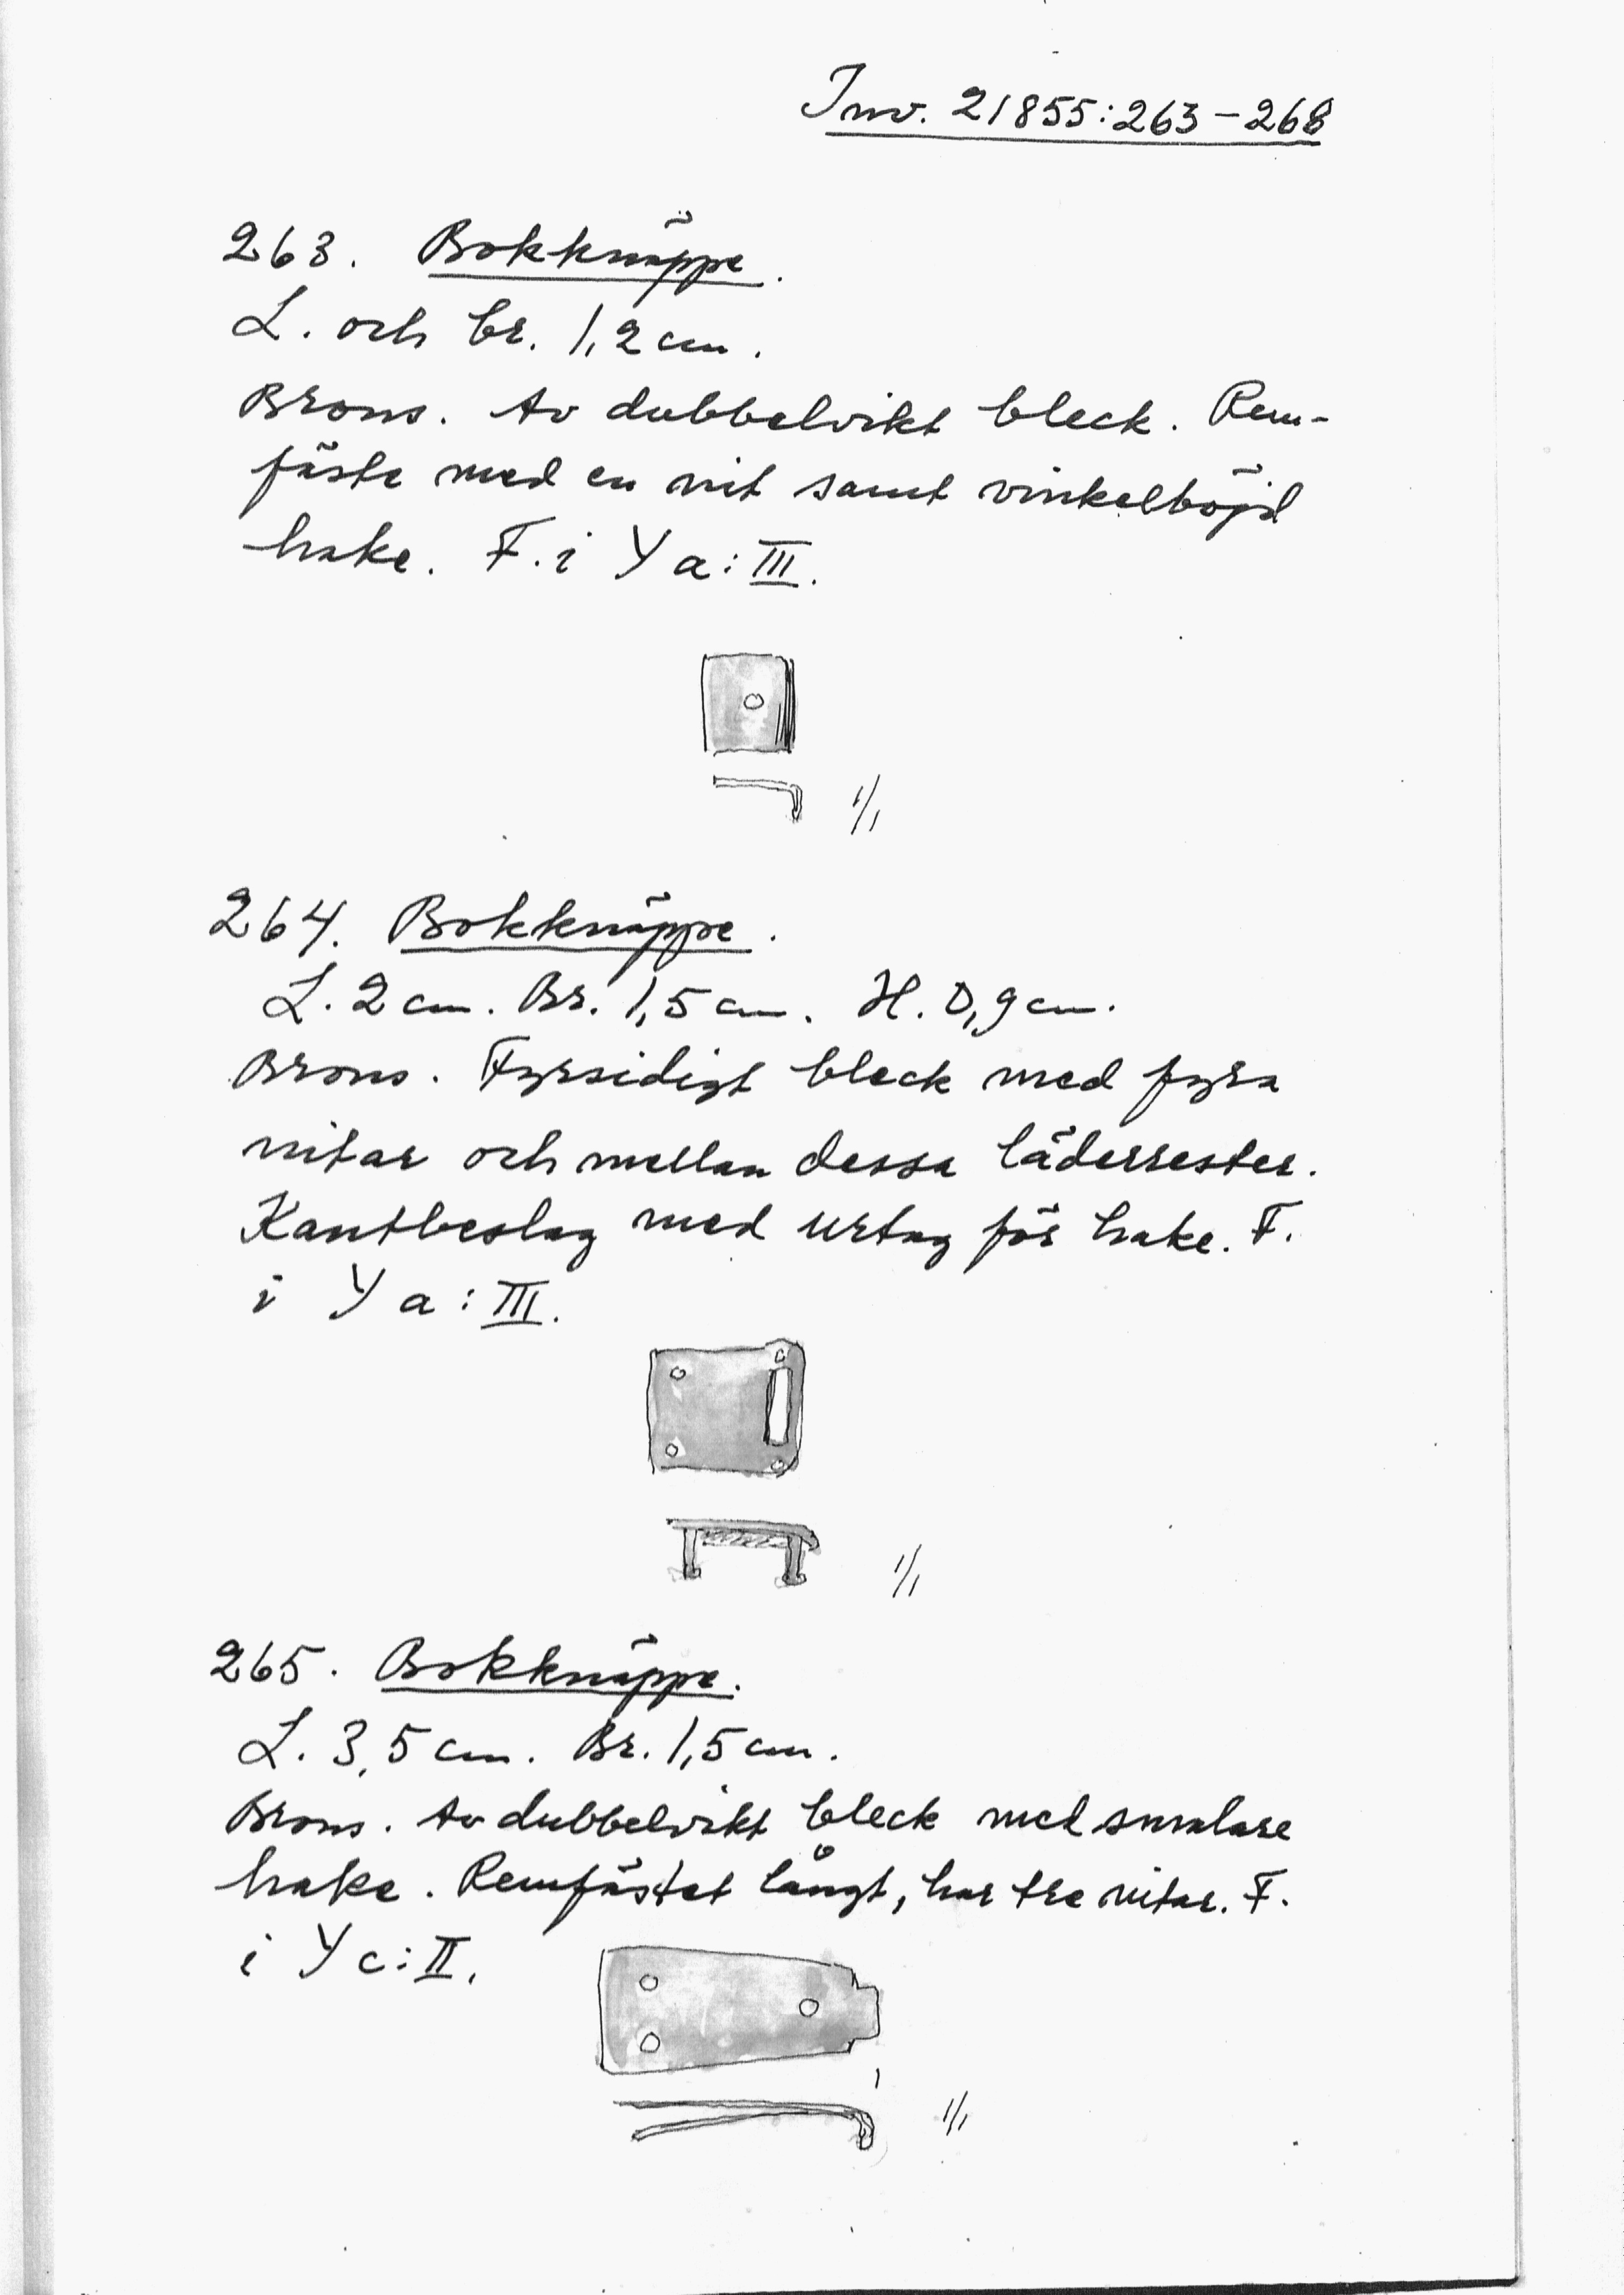 Inv. 21855:263-268
263. Bokknäppe.
L. och br. 1,2 cm.
Brons. Av dubbelvikt bleck. Rem-
fäste med en nit samt vinkelböjd
hake. F. i Y a:III.
1/1
264. Bokknäppe.
L. 2 cm. Br. 1,5 cm. H. 0,9 cm.
Brons. Fyrsidigt bleck med fyra
nitar och mellan dessa läderrester.
Kantbeslag med urtag för hake. F.
i Y a:III.
1/1
265. Bokknäppe.
L. 3,5 cm. Br. 1,5 cm.
Brons. Av dubbelvikt bleck med smalare
hake. Remfästet långt, har tre nitar. F.
i Y c:II.
1/1